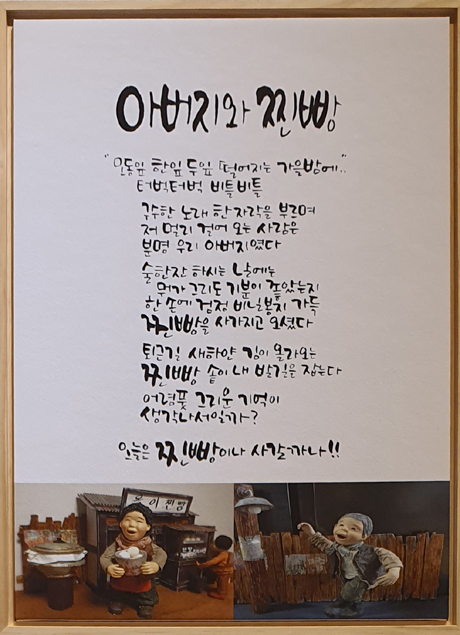 아버지와 찐빵
"오동잎 한잎 두잎 떨어지는 가을밤에.."
터벅터벅 비틀비틀
구수한 노래 한자락을 부르며
저 멀리 걸어 오는 사람은
분명 우리 아버지였다
술한잔 하시는 날에는
뭐가 그리도 기분이 좋았는지
한 손에 검정 비닐봉지 가득
찐빵을 사가지고 오셨다
퇴근길 새하얀 김이 올라오는
찐빵 솥이 내 발길을 잡는다
어렴풋 그리운 기억이
생각나서일까?
오늘은 찐빵이나 사갈까나!!